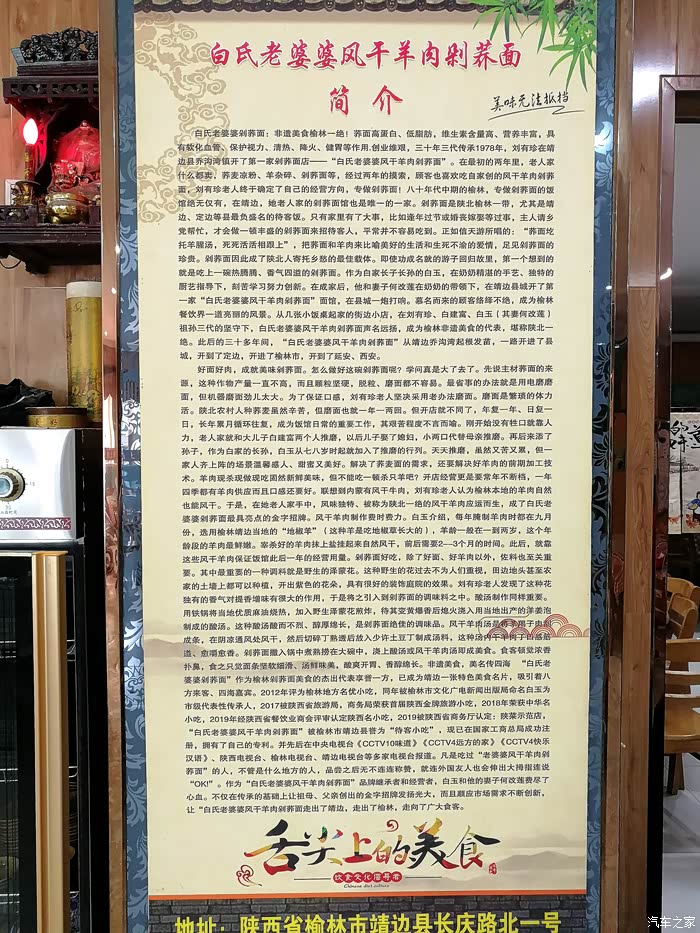 白氏老婆婆风干羊肉剁荞面
简介
美味无法抵挡
白氏老婆婆剁荞面：非遗美食榆林一绝！荞面高蛋白、低脂肪，维生素含量高、营养丰富，具
有软化血管、保护视力、清热、降火、健胃等作用.创业维艰，三十年三代传承1978年，刘有珍在靖
边县乔沟湾镇开了第一家剁荞面店——“白氏老婆婆风干羊肉剁荞面”。在最初的两年里，老人家
什么都卖，荞麦凉粉、羊杂碎、剁荞面等，经过两年的摸索，顾客也喜欢吃自家创的风干羊肉剁荞
面，刘有珍老人终于确定了自己的经营方向，专做剁荞面！八十年代中期的榆林，专做剁荞面的饭
馆绝无仅有，在靖边，她老人家的剁荞面馆也是唯一的一家。剁荞面是陕北榆林一带，尤其是靖
边、定边等县最负盛名的待客饭。只有家里有了大事，比如逢年过节或婚丧嫁娶等过事，主人请乡
党帮忙，才会做一顿丰盛的剁荞面来招待客人，平常并不容易吃到。正如信天游所唱的：“荞面圪
托羊腥汤，死死活活相跟上”，把荞面和羊肉来比喻美好的生活和生死不渝的爱情，足见剁荞面的
珍贵。剁荞面因此成了陕北人寄托乡愁的最佳载体。即使功成名就的游子回归故里，第一个想到的
就是吃上一碗热腾腾、香气四溢的剁荞面。作为白家长子长孙的白玉，在奶奶精湛的手艺、独特的
厨艺指导下，刻苦学习努力创新。在成家后，他和妻子何改莲在奶奶的带领下，在靖边县城开了第
一家“白氏老婆婆风干羊肉剁荞面”面馆，在县城一炮打响。慕名而来的顾客络绎不绝，成为榆林
餐饮界一道亮丽的风景。从几张小饭桌起家的街边小店，在刘有珍、白建富、白玉（其妻何改莲）
祖孙三代的坚守下，白氏老婆婆风干羊肉剁荞面声名远扬，成为榆林非遗美食的代表，堪称陕北一
绝。此后的三十多年间，“白氏老婆婆风干羊肉剁荞面”从靖边乔沟湾起根发苗，一路开进了县
城，开到了定边，开进了榆林市，开到了延安、西安。
好面好肉，成就美味剁荞面。怎么做好这碗剁荞面呢？学问真是大了去了。先说主材荞面的来
源，这种作物产量一直不高，而且颗粒坚硬，脱粒、磨面都不容易。最省事的办法就是用电磨磨
面，但机器磨面劲儿太大。为了保证口感，刘有珍老人坚决采用老办法磨面。磨面是繁琐的体力
活。陕北农村人种荞麦虽然辛苦，但磨面也就一年一两回。但开店就不同了，年复一年、日复一
日，长年累月循环往复，成为饭馆日常的重要工作，其艰苦程度不言而喻。刚开始没有牲口就靠人
力，老人家就和大儿子白建富两个人推磨，以后儿子娶了媳妇，小两口代替母亲推磨。再后来添了
孙子，作为白家的长孙，白玉从七八岁时起就加入了推磨的行列。天天推磨，虽然又苦又累，但一
家人齐上阵的场景温馨感人、甜蜜又美好。解决了荞麦面的需求，还要解决好羊肉的前期加工技
术。羊肉现杀现做现吃固然新鲜美味，但不能吃一顿杀只羊吧？开店经营更是要常年不断档，一年
四季都有羊肉供应而且口感还要好。联想到内蒙有风干牛肉，刘有珍老人认为榆林本地的羊肉自然
也能风干。于是，在她老人家手中，风味独特、被称为陕北一绝的风干羊肉应运而生，成了白氏老
婆婆剁荞面最具亮点的金字招牌。风干羊肉制作费时费力。白玉介绍，每年腌制羊肉时都在九月
份，选用榆林靖边当地的“地椒羊”（这种羊是吃地椒草长大的），羊龄一般在一到两岁，这个年
龄段的羊肉最鲜嫩。宰杀好的羊肉抹上盐挂起来自然风干，前后需要2—3个月的时间。此后，就靠
这些风干羊肉保证饭馆此后一年的经营用量。剁荞面好吃，除了好面、好羊肉以外，佐料也至关重
要。其中最重要的一种调料就是野生的泽蒙花。这种野生的花过去不为人们重视，田边地头甚至农
家的土墙上都可以种植，开出紫色的花朵，具有很好的装饰庭院的效果。刘有珍老人发现了这种花
独有的香气对提香增味有很大的作用，于是将之引到剁荞面的调味料之中。酸汤制作同样重要。
用铁锅将当地优质麻油烧热，加入野生泽蒙花煎炸，待其变黄爆香后熄火浇入用当地出产的洋姜泡
制成的酸汤。这种酸汤酸而不烈、醇厚绵长，是剁荞面绝佳的调味品。风干羊肉汤是将羊腿子肉切
成条，在阴凉通风处风干，然后切碎丁熟透后放入少许土豆丁制成汤料，这种汤肉干羊肉丁口感筋
道、愈嚼愈香。剁荞面撒入锅中煮熟捞在大碗中，浇上酸汤或风干羊肉汤即成美食。食客顿觉浓香
扑鼻，食之只觉面条坚软细滑、汤鲜味美，酸爽开胃、香醇绵长。非遗美食，美名传四海 “白氏老
婆婆剁荞面”作为榆林剁荞面美食的杰出代表享誉一方，已成为靖边一张特色美食名片，吸引着八
方来客、四海嘉宾。2012年评为榆林地方名优小吃，同年被榆林市文化广电新闻出版局命名白玉为
市级代表性传承人，2017被陕西省旅游局，商务局荣获首届陕西金牌旅游小吃，2018年荣获中华名
小吃，2019年经陕西省餐饮业商会评审认定陕西名小吃，2019被陕西省商务厅认定：陕菜示范店，
“白氏老婆婆风干羊肉剁荞面”被榆林市靖边县誉为“待客小吃”，现已在国家工商总局成功注
册，拥有了自己的专利。并先后在中央电视台《CCTV10味道》《CCTV4远方的家》《CCTV4快乐
汉语》、陕西电视台、榆林电视台、靖边电视台等多家电视台报道。凡是吃过“老婆婆风干羊肉剁
荞面”的人，不管是什么地方的人，品尝之后无不连连称赞，就连外国友人也会伸出大拇指连说
“OK!”。作为“白氏老婆婆风干羊肉剁荞面”品牌继承者和经营者，白玉和他的妻子何改莲费尽了
心血。不仅在传承的基础上让祖母、父亲创出的金字招牌发扬光大，而且顺应市场需求不断创新，
让“白氏老婆婆风干羊肉剁荞面走出了靖边，走出了榆林，走向了广大食客。
舌尖上的美食
饮食文化倡导者
Chinese diet culture
地址：陕西省榆林市靖边县长庆路北一号
汽车之家